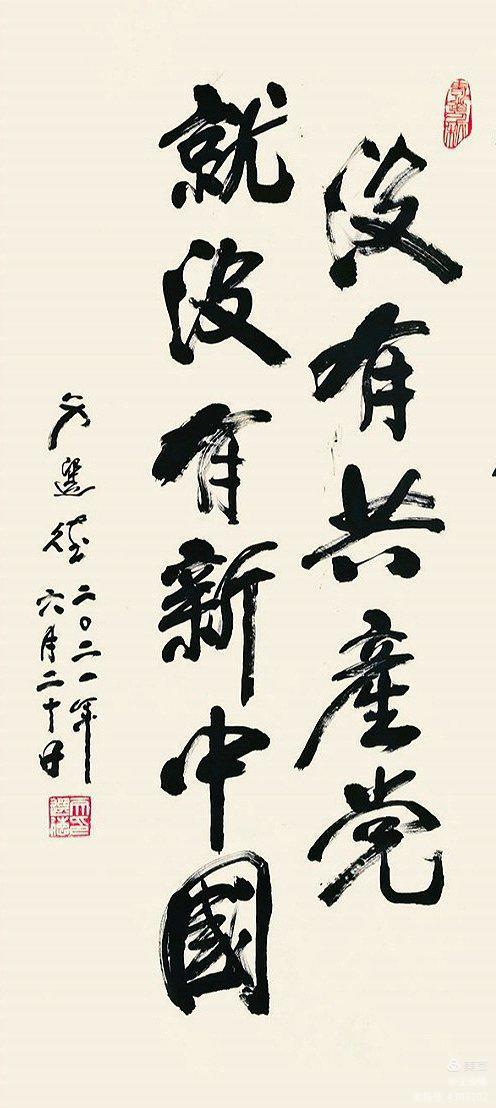 没有共產党
就没有新中國
二〇二一年
六月二十日